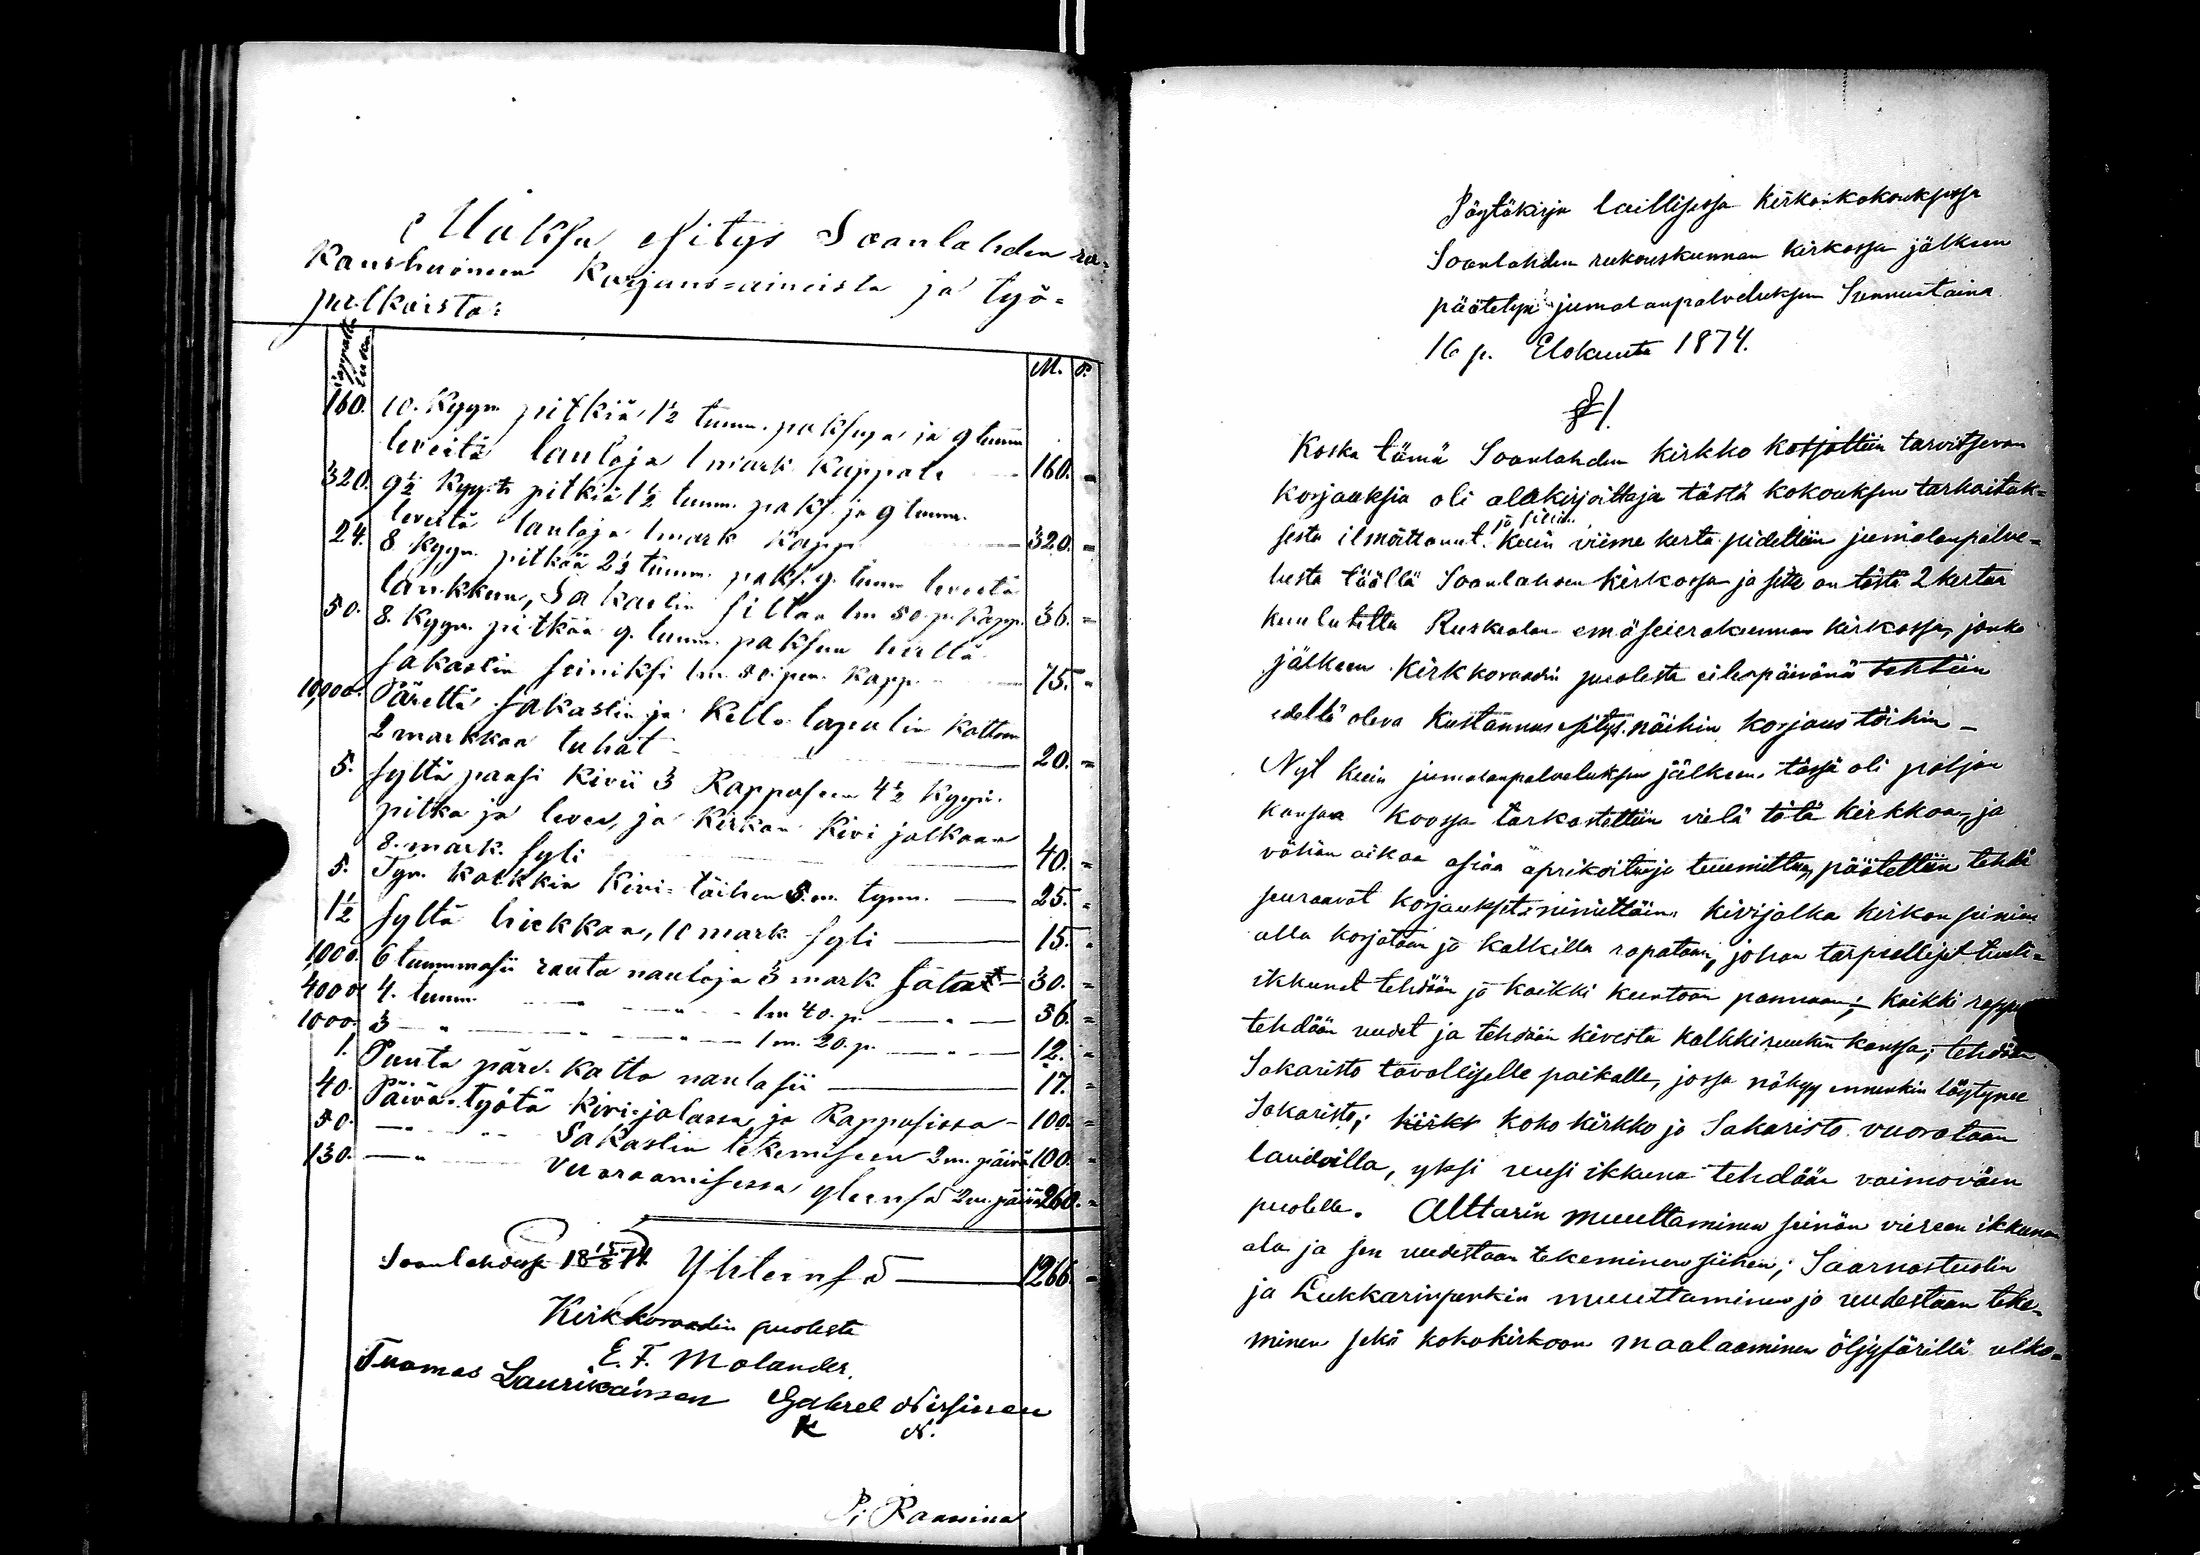 Maksu esitys Soanlahden ra-
kaushuoneen Korjaus-aineista ja työ-
palkoista:
kappale luku. M. P.
160. 10. Kyyn. pitkiä 1½ tuum. paksuja ja 9 tuum
leveitä lautoja 1 mark. Kappale — 160. =
320. 9½ Kyy:ä pitkiä 1½ tuum. paks. ja 9 tuum.
leveitä lautoja 1 mark Kapp. — 320. =
24. 8 Kyyn. pitkää 2½ tuum. paks. 9. tuum leveetä
lankkuu, Sakastin siltaa 1m 50. p. Kapp. 36. =
50. 8. Kyyn. pitkää 9. tuum. paksuu hirttä
sakastin seiniksi 1m. 50. pen. Kapp. — 75. =
10,000. Pärettä sakastin ja Kello tapulin kattoon
2 markkaa tuhat — 20. =
5. syltä paasi kivii 3 Rappuseen 4½ Kyyn.
pitkä ja leveä, ja Kirkon Kivi jalkaan
8. mark. syli — 40. =
5. Tyn. kalkkia Kivi-töihen 5. m. tynn. — 25. =
1½ syltä hiekkaa, 10 mark syli — 15. =
1,000. 6 tuummasii rauta nauloja 3 mark. sata — 30. =
4000 4. tuum. — " — 1m 40. p. — " — 56. =
1000. 3 — " — 1m. 20. p. — " — 12. =
1. Puuta päre. katto naulasii — 17. =
40. Päivä-työtä Kivi-jalassa ja Rappusissa - 100. =
50. — " — Sakastin tekemiseen 2m. päivä 100. =
130. — " — Vuoraamisessa yleensä 2m. päivä 260. =
Soanlahdessa 18 15/8 74. Yhteensä — 1266. =
Kirkkoraadin puolesta
E. F. Molander.
Tuomas Laurikainen Gabrel Nissinen
K N.
P; Raassina
Pöytäkirja laillisessa kirkonkokouksessa
Soanlahden rukouskunnan kirkossa jälkeen
päätetyn jumalanpalveluksen Sunnuntaina
16 p. Elokuuta 1874.
§ 1.
Koska tämä Soanlahden kirkko katsottiin tarvitsevan
korjauksia oli allekirjoittaja tästä kokouksen tarkoituk-
sesta ilmoittanut kuin viime kerta pidettiin jumalanpalve-
lusta täällä Soanlahden kirkossa ja sitte on tästä 2 kertaa
kuulutettu Ruskealan emäseurakunnan kirkossa, jonka
jälkeen Kirkkoraadin puolesta eilispäivänä tehtiin
edellä oleva kustannus esitys näihin korjaus töihin —
Nyt kuin jumalanpalveluksen jälkeen, tässä oli paljon
kansaa koossa tarkastettiin vielä tätä kirkkoa, ja
vähän aikaa asiaa aprikoituja tuumittua, päätettiin tehdä
seuraavat korjaukset: nimittäin: kivijalka kirkon seinien
alla korjataan ja kalkilla rapataan, johon tarpeelliset tuuli-
ikkunat tehdään ja kaikki kuntoon pannaan; kaikki rappu
tehdään uudet ja tehdään kivestä kalkkiruukin kanssa; tehdään
Sakaristo tavalliselle paikalle, jossa näkyy ennenkin löytynee
Sakaristo; kirkk koko kirkko ja Sakaristo vuorataan
laudoilla, yksi uusi ikkuna tehdään vaimoväen
puolelle. Alttarin muuttaminen seinän viereen ikkunan
ala ja sen uudestaan tekeminen siihen; Saarnastuolin
ja Lukkarinpenkin muuttaminen ja uudestaan teke-
minen sekä kokokirkoon maalaaminen öljyfärillä ulko-